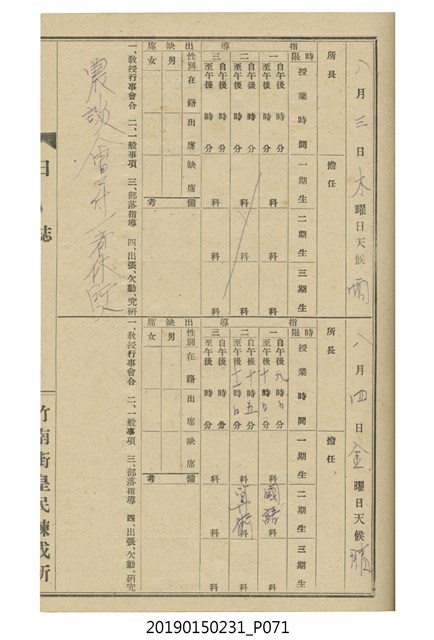 八月三日木曜日天候雨
所長
擔任
指導
時限
授業時間
一期生
二期生
三期生
一
自午後 時 分
至午後 時 分
科
科
科
二
自午後 時 分
至午後 時 分
科
科
科
三
自午後 時 分
至午後 時 分
科
科
科
出缺席
性別
在籍
出席
缺席
備考
男
女
一、敎授行事會合 二、一般事項 三、部落指導 四、出張、欠勤、究研
八月四日金曜日天候晴
所長
擔任
指導
時限
授業時間
一期生
二期生
三期生
一
自午後九時 分
至午後十時 分
科
國語科
科
二
自午後十時五分
至午後十一時 分
科
算術科
科
三
自午後 時 分
至午後 時 分
科
科
科
出缺席
性別
在籍
出席
缺席
備考
男
女
一、敎授行事會合 二、一般事項 三、部落指導 四、出張、欠勤、研究
日誌
竹南街皇民鍊成所
20190150231_P071